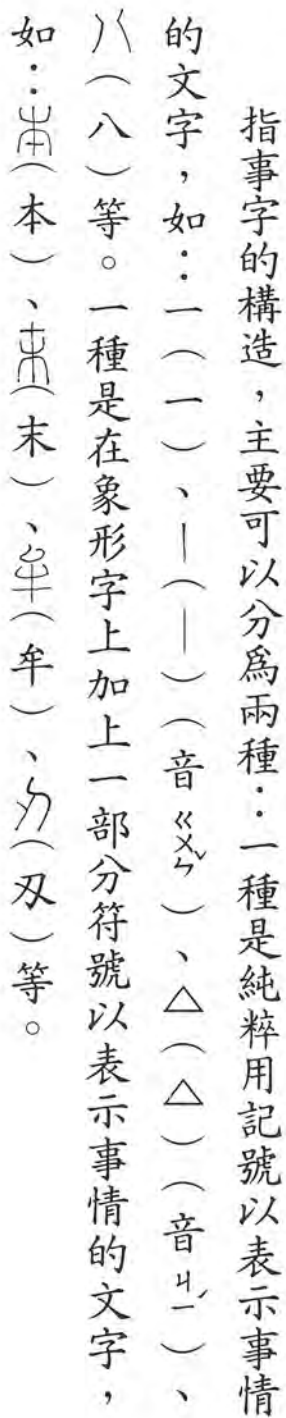 指事字的構造，主要可以分爲兩種：一種是純粹用記號以表示事情
的文字，如：一（一）、丨（丨）（音ㄍㄨㄣˇ）、△（△）（音ㄐㄧˊ）、
八（八）等。一種是在象形字上加上一部分符號以表示事情的文字，
如：本（本）、末（末）、牟（牟）、刃（刃）等。